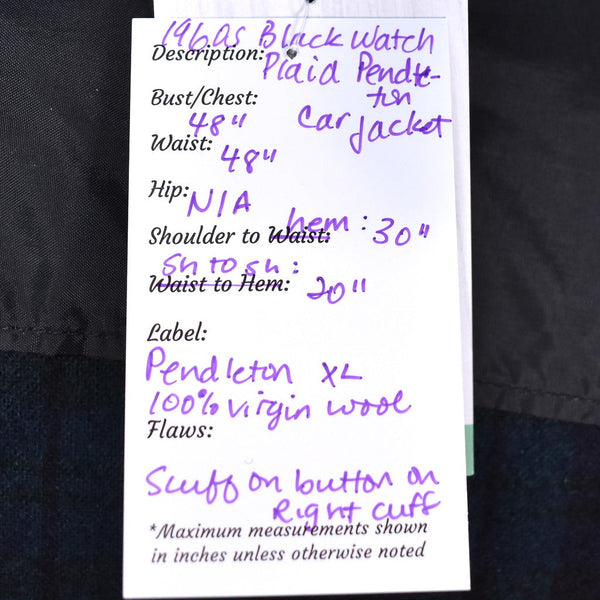 1960s Black Watch
Description: Plaid Pendle-
ton
Bust/Chest: Car Jacket
48"
Waist: 48"
Hip: N/A
hem: 30"
Shoulder to Waist:
Sh to sh:
Waist to Hem: 20"
Label:
Pendleton XL
100% virgin wool
Flaws:
Scuff on button on
Right cuff
*Maximum measurements shown
in inches unless otherwise noted